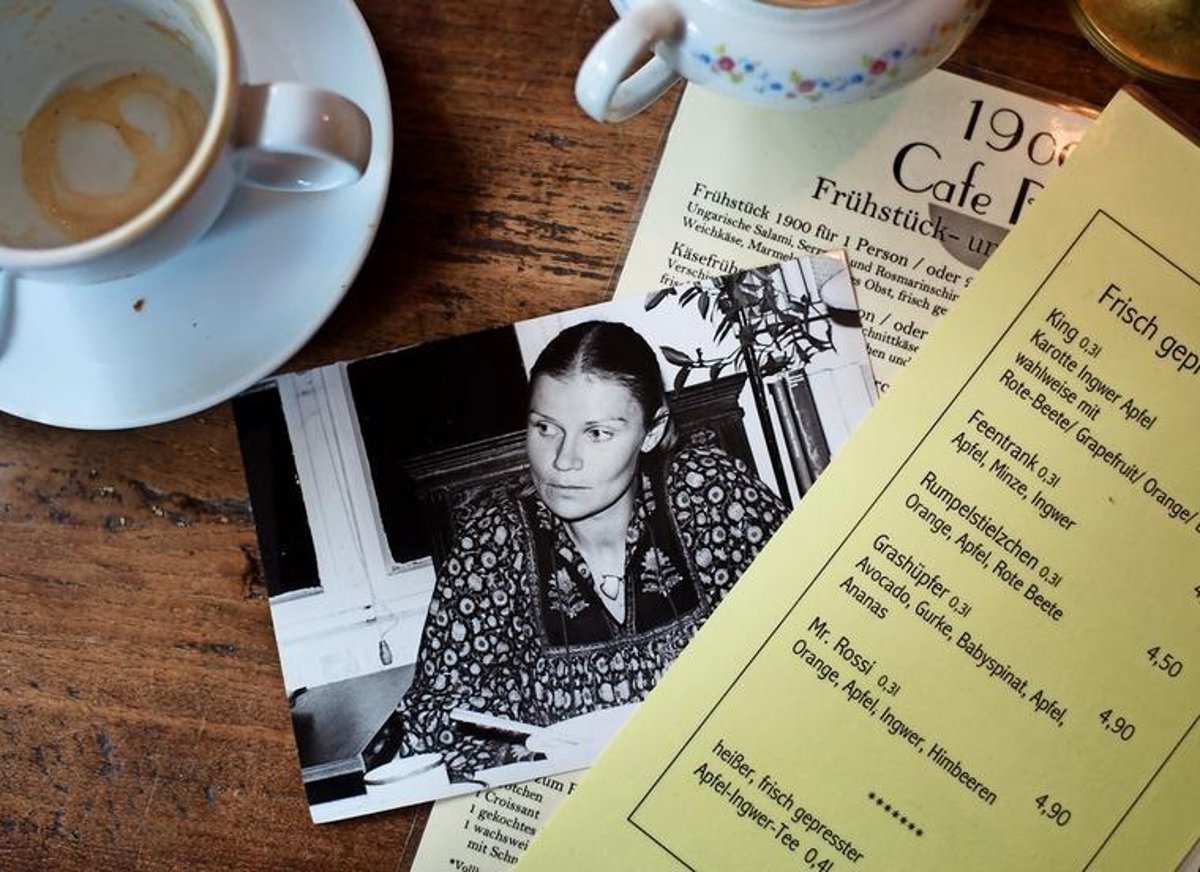 1900
Cafe
Frühstück- un
Frühstück 1900 für 1 Person / oder
Ungarische Salami, Serr und Rosmarinschin
Weichkäse, Marmel s Obst, frisch ge
Käsefrüh
Verschi
fris
on / oder
chnittkäse
hen und
zum F
ötchen
1 Croissant
1 gekochtes
1 wachswei
mit Schn
*Voll
Frisch gepr
King 0,3l
Karotte Ingwer Apfel
wahlweise mit
Rote-Beete/ Grapefruit/ Orange/
Feentrank 0,3l
Apfel, Minze, Ingwer
Rumpelstielzchen 0,3l
Orange, Apfel, Rote Beete
4,50
Grashüpfer 0,3l
Avocado, Gurke, Babyspinat, Apfel,
Ananas
4,90
Mr. Rossi 0,3l
Orange, Apfel, Ingwer, Himbeeren
4,90
******
heißer, frisch gepresster
Apfel-Ingwer-Tee 0,4l